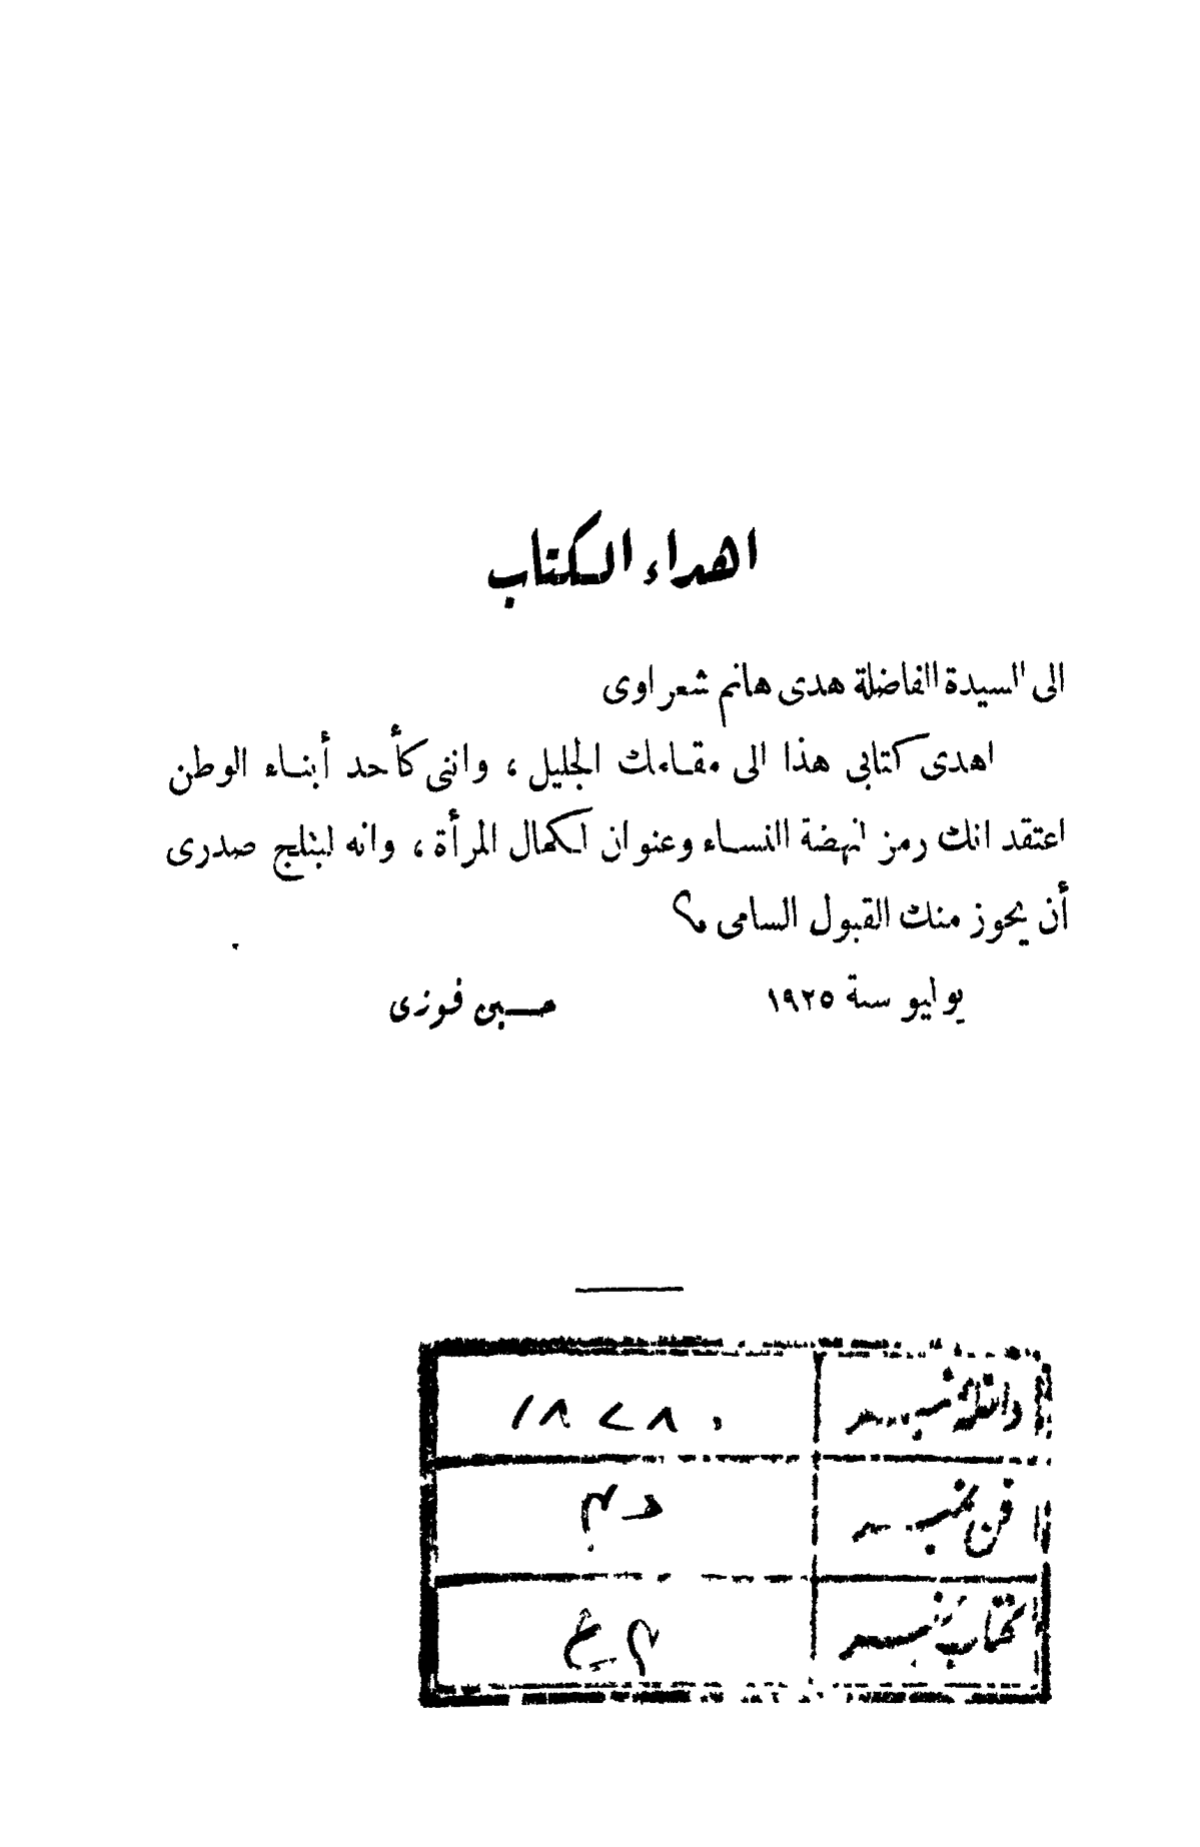 اهداء الكتاب
الى السيدة الفاضلة هدى هانم شعراوى
اهدى كتابى هذا الى مقامك الجليل ، واننى كأحد أبناء الوطن
اعتقد انك رمز لنهضة النساء وعنوان لكمال المرأة ، وانه ليثلج صدرى
أن يحوز منك القبول السامى
يوليو سنة ١٩٢٥
حسين فوزى
داخله نمبر
فن نمبر
كتاب نمبر